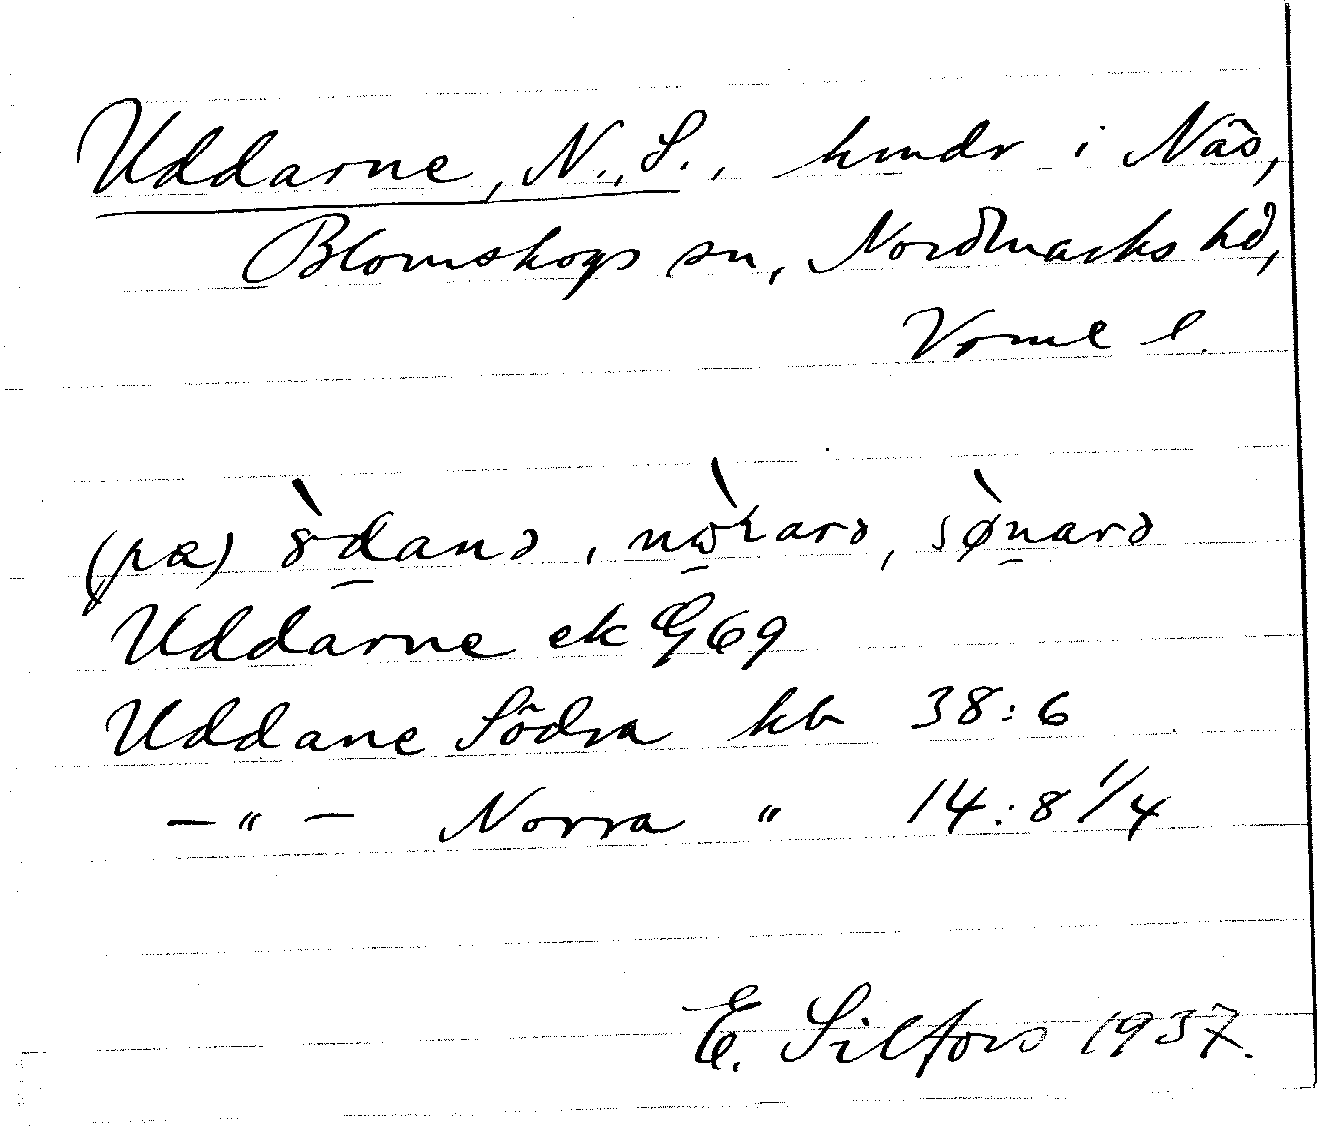 Uddarne, N., S., hmdr i Näs,
Blomskogs sn, Nordmarks hd,
Vrml l.
(pa) 8̀danə, nὼꝛarə, sø̀narə
Uddarne ek G69
Uddane Södra kb 38:6
–"– Norra " 14:8 1/4
E. Silfors 1937.